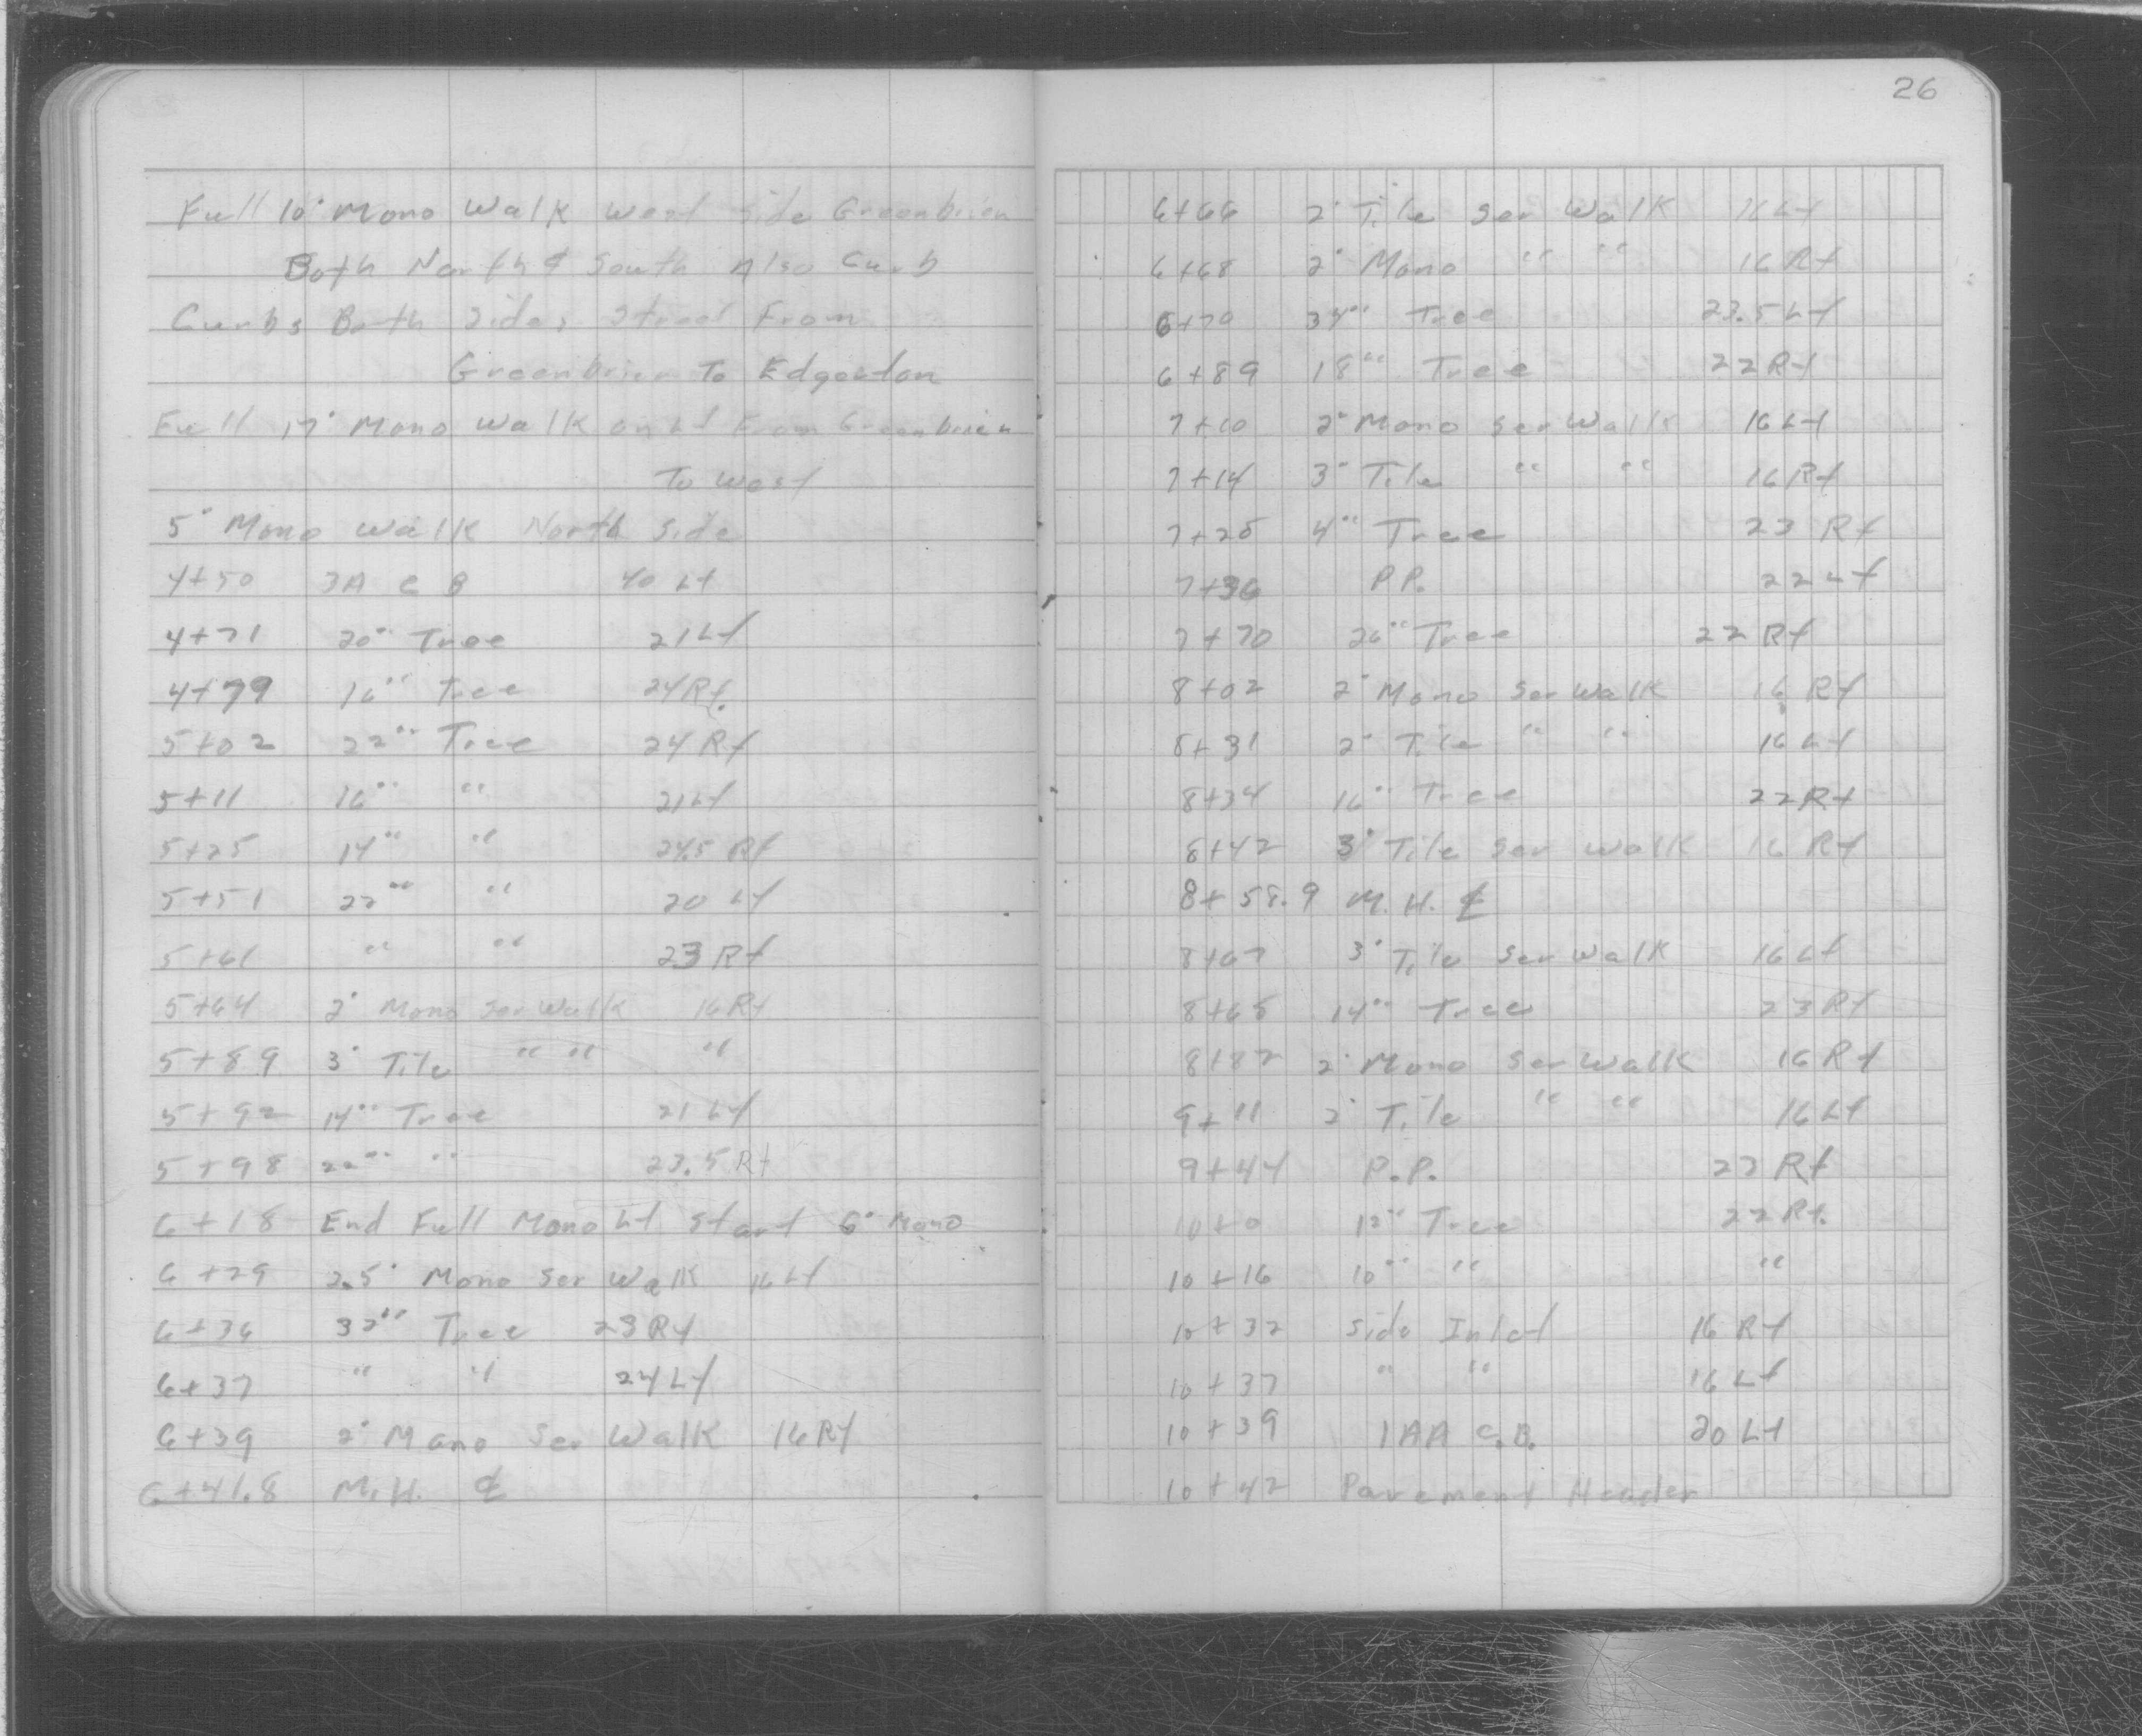 Full 10' Mono Walk West Side Greenbrier
Both North & South Also Curb
Curbs Both Sides Street From
Greenbrier To Edgerton
Full 17' Mono Walk on Lt From Greenbrier
To West
5' Mono Walk North Side
4+50 3A C B 40 Lt
4+71 20" Tree 21 Lt
4+79 16" Tree 24 Rt.
5+02 22" Tree 24 Rt
5+11 16" " 21 Lt
5+25 14" " 24.5 Rt
5+51 22" " 20 Lt
5+61 " " 23 Rt
5+64 2' Mono Ser Walk 16 Rt
5+89 3' Tile " " "
5+92 14" Tree 21 Lt
5+98 22" " 23.5 Rt
6+18 End Full Mono Lt Start 6' Mono
6+29 2.5' Mono Ser Walk 16 Lt
6+36 32" Tree 23 Rt
6+37 " " 24 Lt
6+39 2' Mono Ser Walk 16 Rt
6+41.8 M.H. ℄
26
6+66 2' Tile Ser Walk 16 Lt
6+68 2' Mono " " 16 Rt
6+70 34" Tree 23.5 Lt
6+89 18" Tree 22 Rt
7+10 2' Mono Ser Walk 16 Lt
7+14 3' Tile " " 16 Rt
7+25 4" Tree 23 Rt
7+36 P.P. 22 Lt
7+70 26" Tree 22 Rt
8+02 2' Mono Ser Walk 16 Rt
8+31 2' Tile " " 16 Lt
8+34 16" Tree 22 Rt
8+42 3' Tile Ser Walk 16 Rt
8+58.9 M.H. ℄
8+67 3' Tile Ser Walk 16 Lt
8+68 14" Tree 23 Rt
8+82 2' Mono Ser Walk 16 Rt
9+11 2' Tile " " 16 Lt
9+44 P.P. 22 Rt
10+0 12" Tree 22 Rt.
10+16 10" " "
10+32 Side Inlet 16 Rt
10+37 " " 16 Lt
10+39 1AA C.B. 20 Lt
10+42 Pavement Header